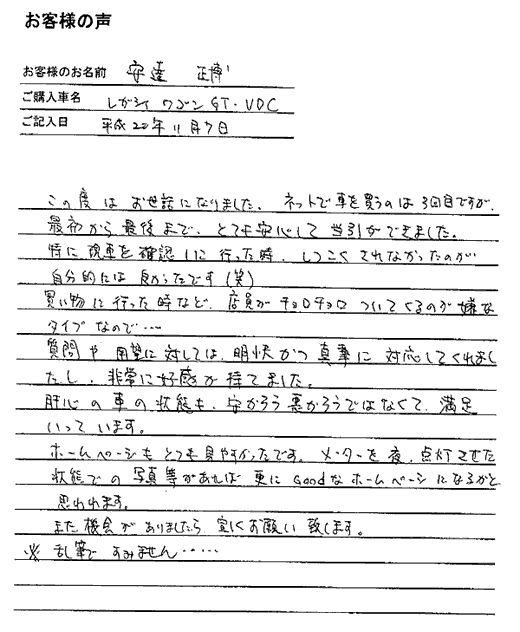 お客様の声
お客様のお名前 安達 正博
ご購入車名 レガシィ ワゴン GT・VDC
ご記入日 平成22年11月7日
この度は お世話になりました。 ネットで車を買うのは3回目ですが、
最初から最後まで、とても安心して 当引ができました。
特に現車を確認しに行った時、しつこくされなかったのが
自分的には 良かったです(笑)
買い物に行った時など、店員がチョロチョロ ついてくるのが嫌な
タイプなので・・・
質問や 用望に対しては、明快かつ 真摯に 対応してくれまし
たし、非常に好感が持てました。
肝心の車の状態も、安かろう悪かろうではなくて、満足
いっています。
ホームページもとても見やすかったです。メーターを夜、点灯させた
状態での 写真等があれば 更に Goodなホームページになるかと
思われます。
また機会がありましたら 宜しくお願い致します。
※ 乱筆で すみません・・・・・